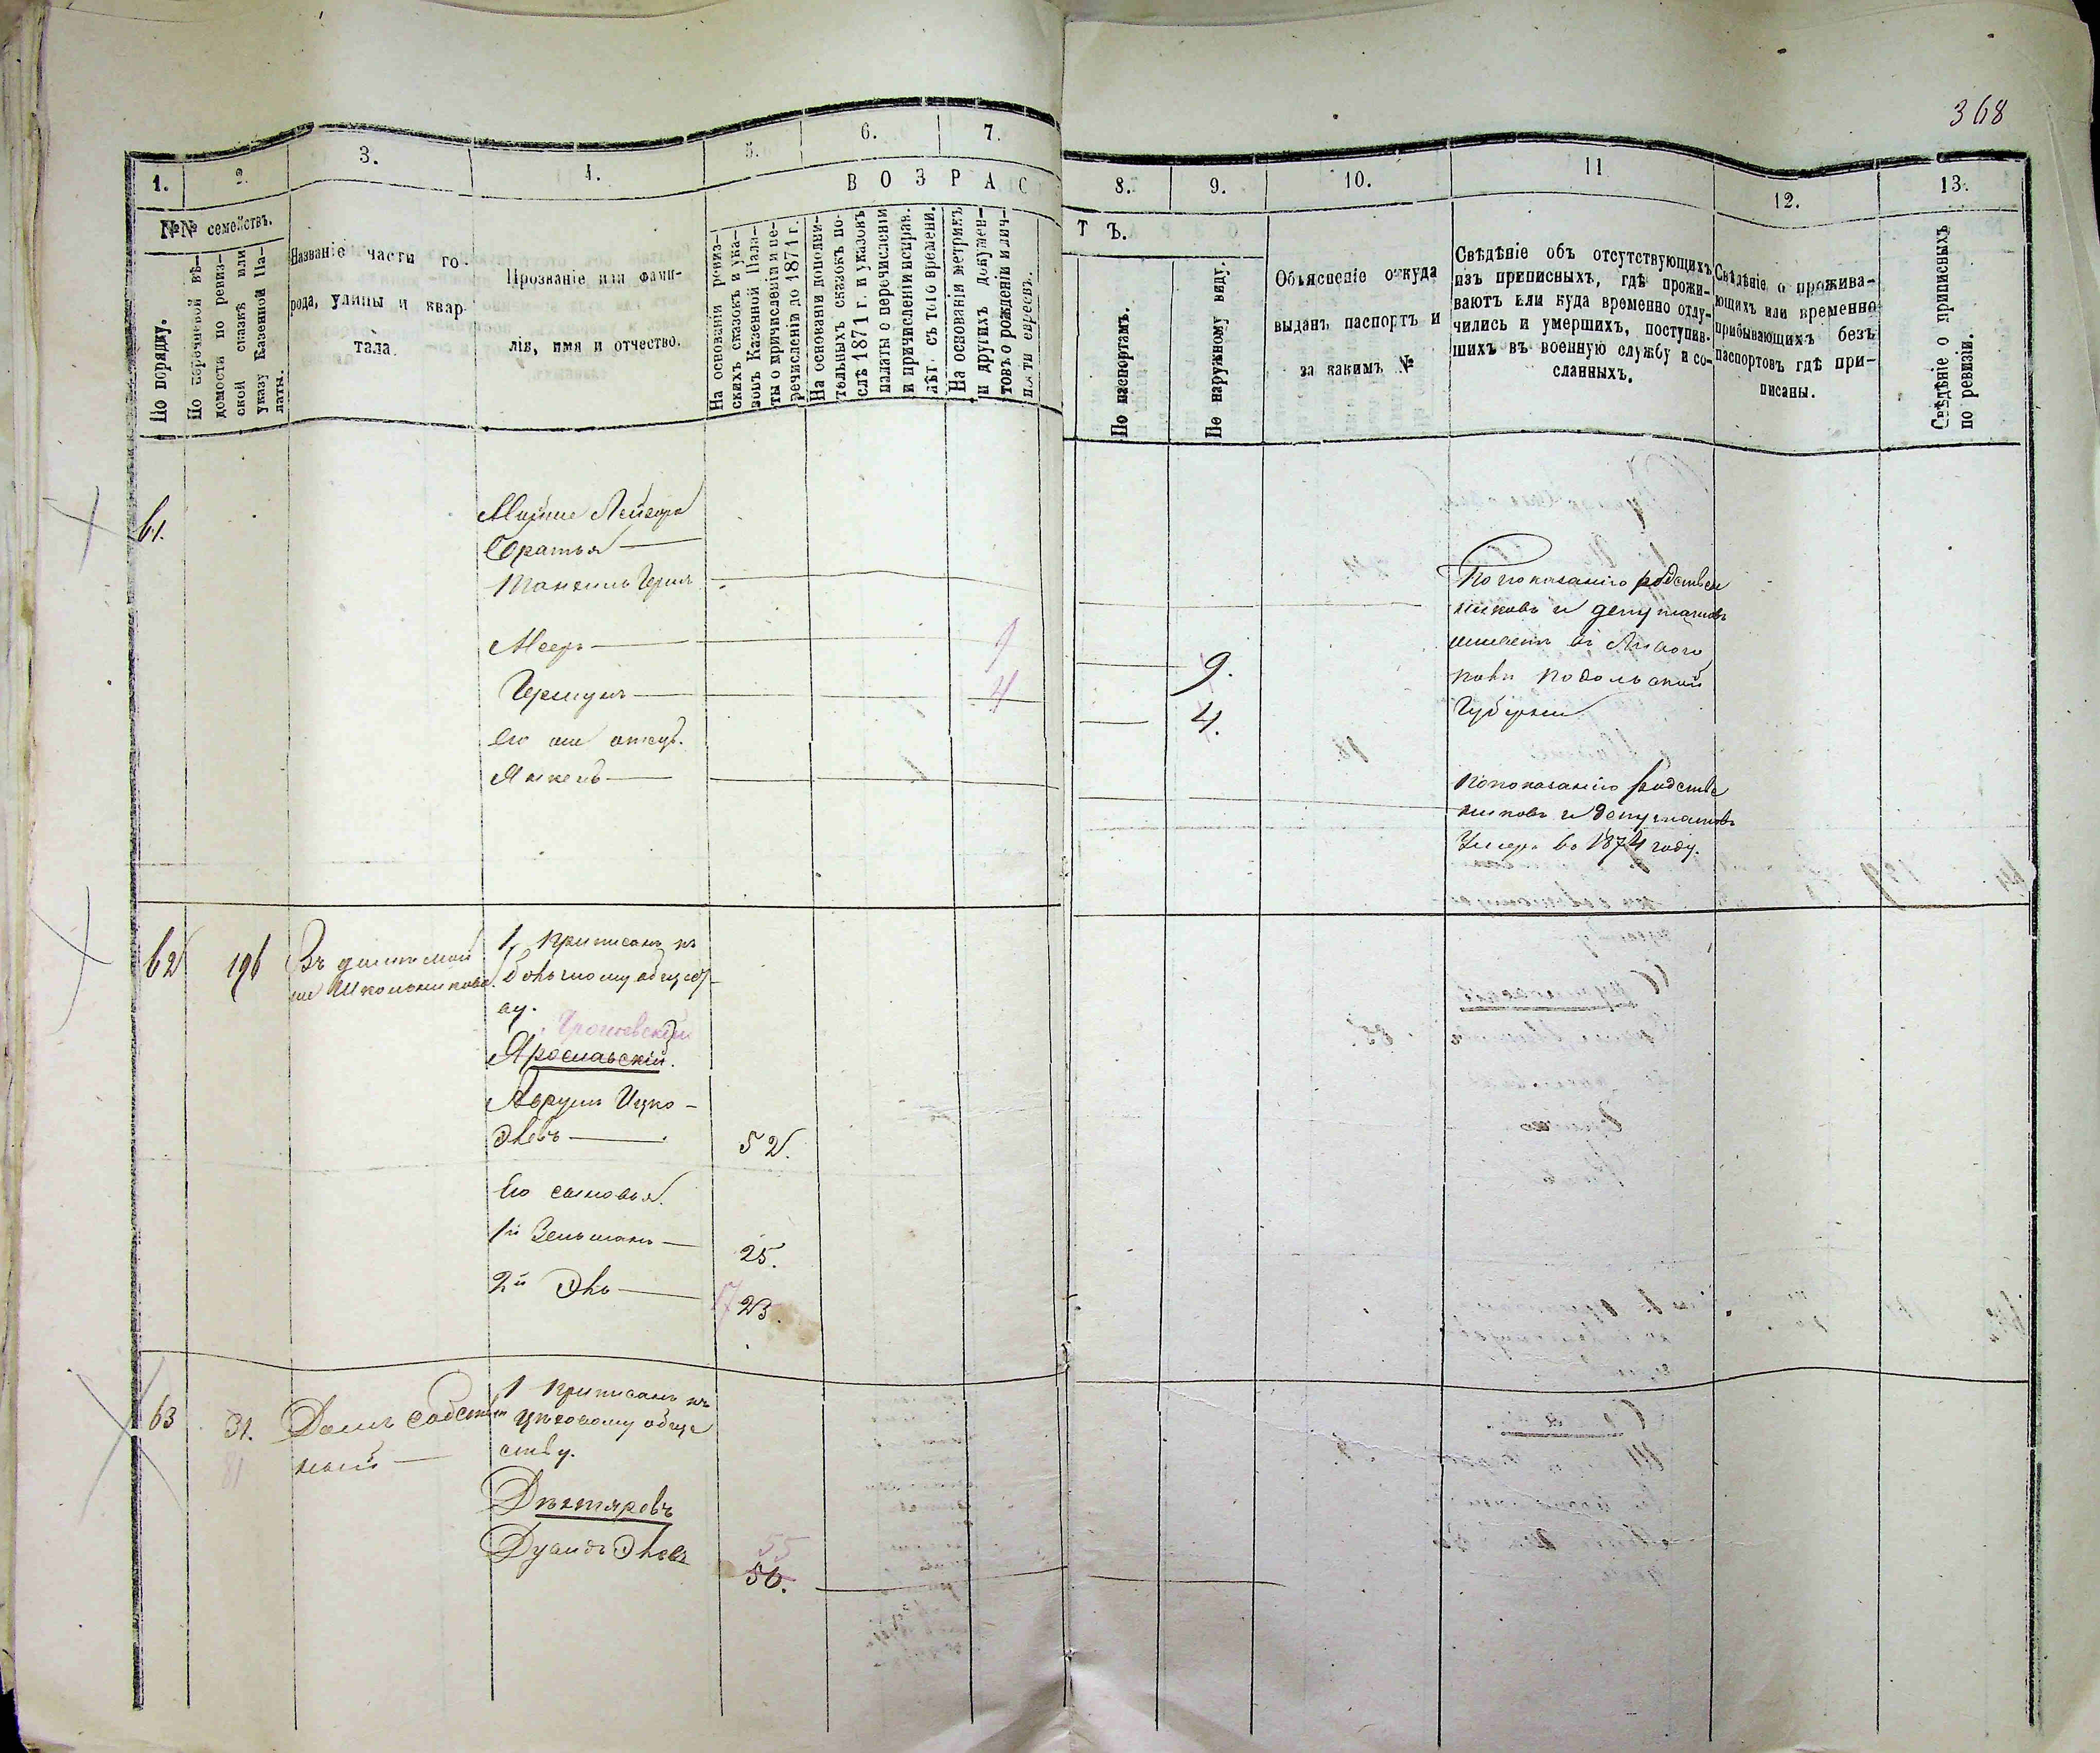 368
1.
2.
3.
4.
5.
6.
7.
8.
9.
10.
11
12.
13.
В О З Р А С
Т Ъ.
№№ семействъ.
По порядку.
По перечневой вѣ-
домости по ревиз-
ской сказкѣ или
указу Казенной Па-
латы.
Названіе части го-
рода, улицы и квар-
тала.
Прозваніе или фами-
лія, имя и отчество.
На основаніи ревиз-
скихъ сказокъ и ука-
зовъ Казенной Пала-
ты о причисленіи и пе-
речисленіи до 1871 г.
На основаніи дополни-
тельныхъ сказокъ по-
слѣ 1871 г. и указовъ
палаты о перечисленіи
и причисленіи исправ.
лѣт. съ того времени.
На основаніи метрикъ
и другихъ докумен-
товъ о рожденіи и лич-
ности евреевъ.
По паспортамъ.
По наружному виду.
Объясненіе откуда
выданъ паспортъ и
за какимъ №
Свѣдѣніе объ отсутствующихъ
изъ приписныхъ, гдѣ прожи-
ваютъ или куда временно отлу-
чились и умершихъ, поступив-
шихъ въ военную службу и со-
сланныхъ.
Свѣдѣніе о прожива-
ющихъ или временно
прибывающихъ безъ
паспортовъ гдѣ при-
писаны.
Свѣдѣніе о приписныхъ
по ревизіи.
61.
Братья
Мееръ
9
9.
Гершунъ
4
4.
Янкель
По показанію родствен
никовъ и депутатовъ
Подольской
Губерніи
По показанію родстве
никовъ и депутатовъ
Умеръ въ 1874 году.
62 196
Школьникова.
1, Приписанъ къ
Ярославскій.
Аврумъ Ицко-
52.
Его сыновья.
1й Зельманъ
25.
2й
17 23.
63 31.
81
Домъ собствен
ный
1 Приписанъ къ
цеховому обще
ству.
Дехтяревъ
55
56.